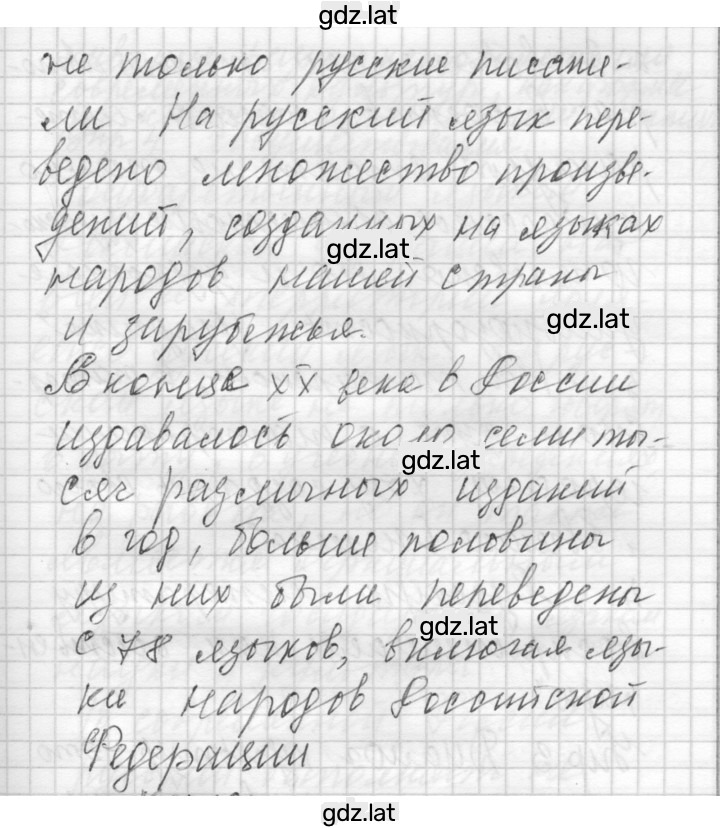 gdz.lat
не только русские писате-
ли На русский язык пере-
ведено множество произве-
дений, созданных на языках
gdz.lat
народов нашей страны
и зарубежья.
gdz.lat
В конце XX века в России
издавалось около семи ты-
gdz.lat
сяч различных изданий
в год, больше половины
из них были переведены
gdz.lat
с 78 языков, включая язы-
ки народов Российской
Федерации
gdz.lat